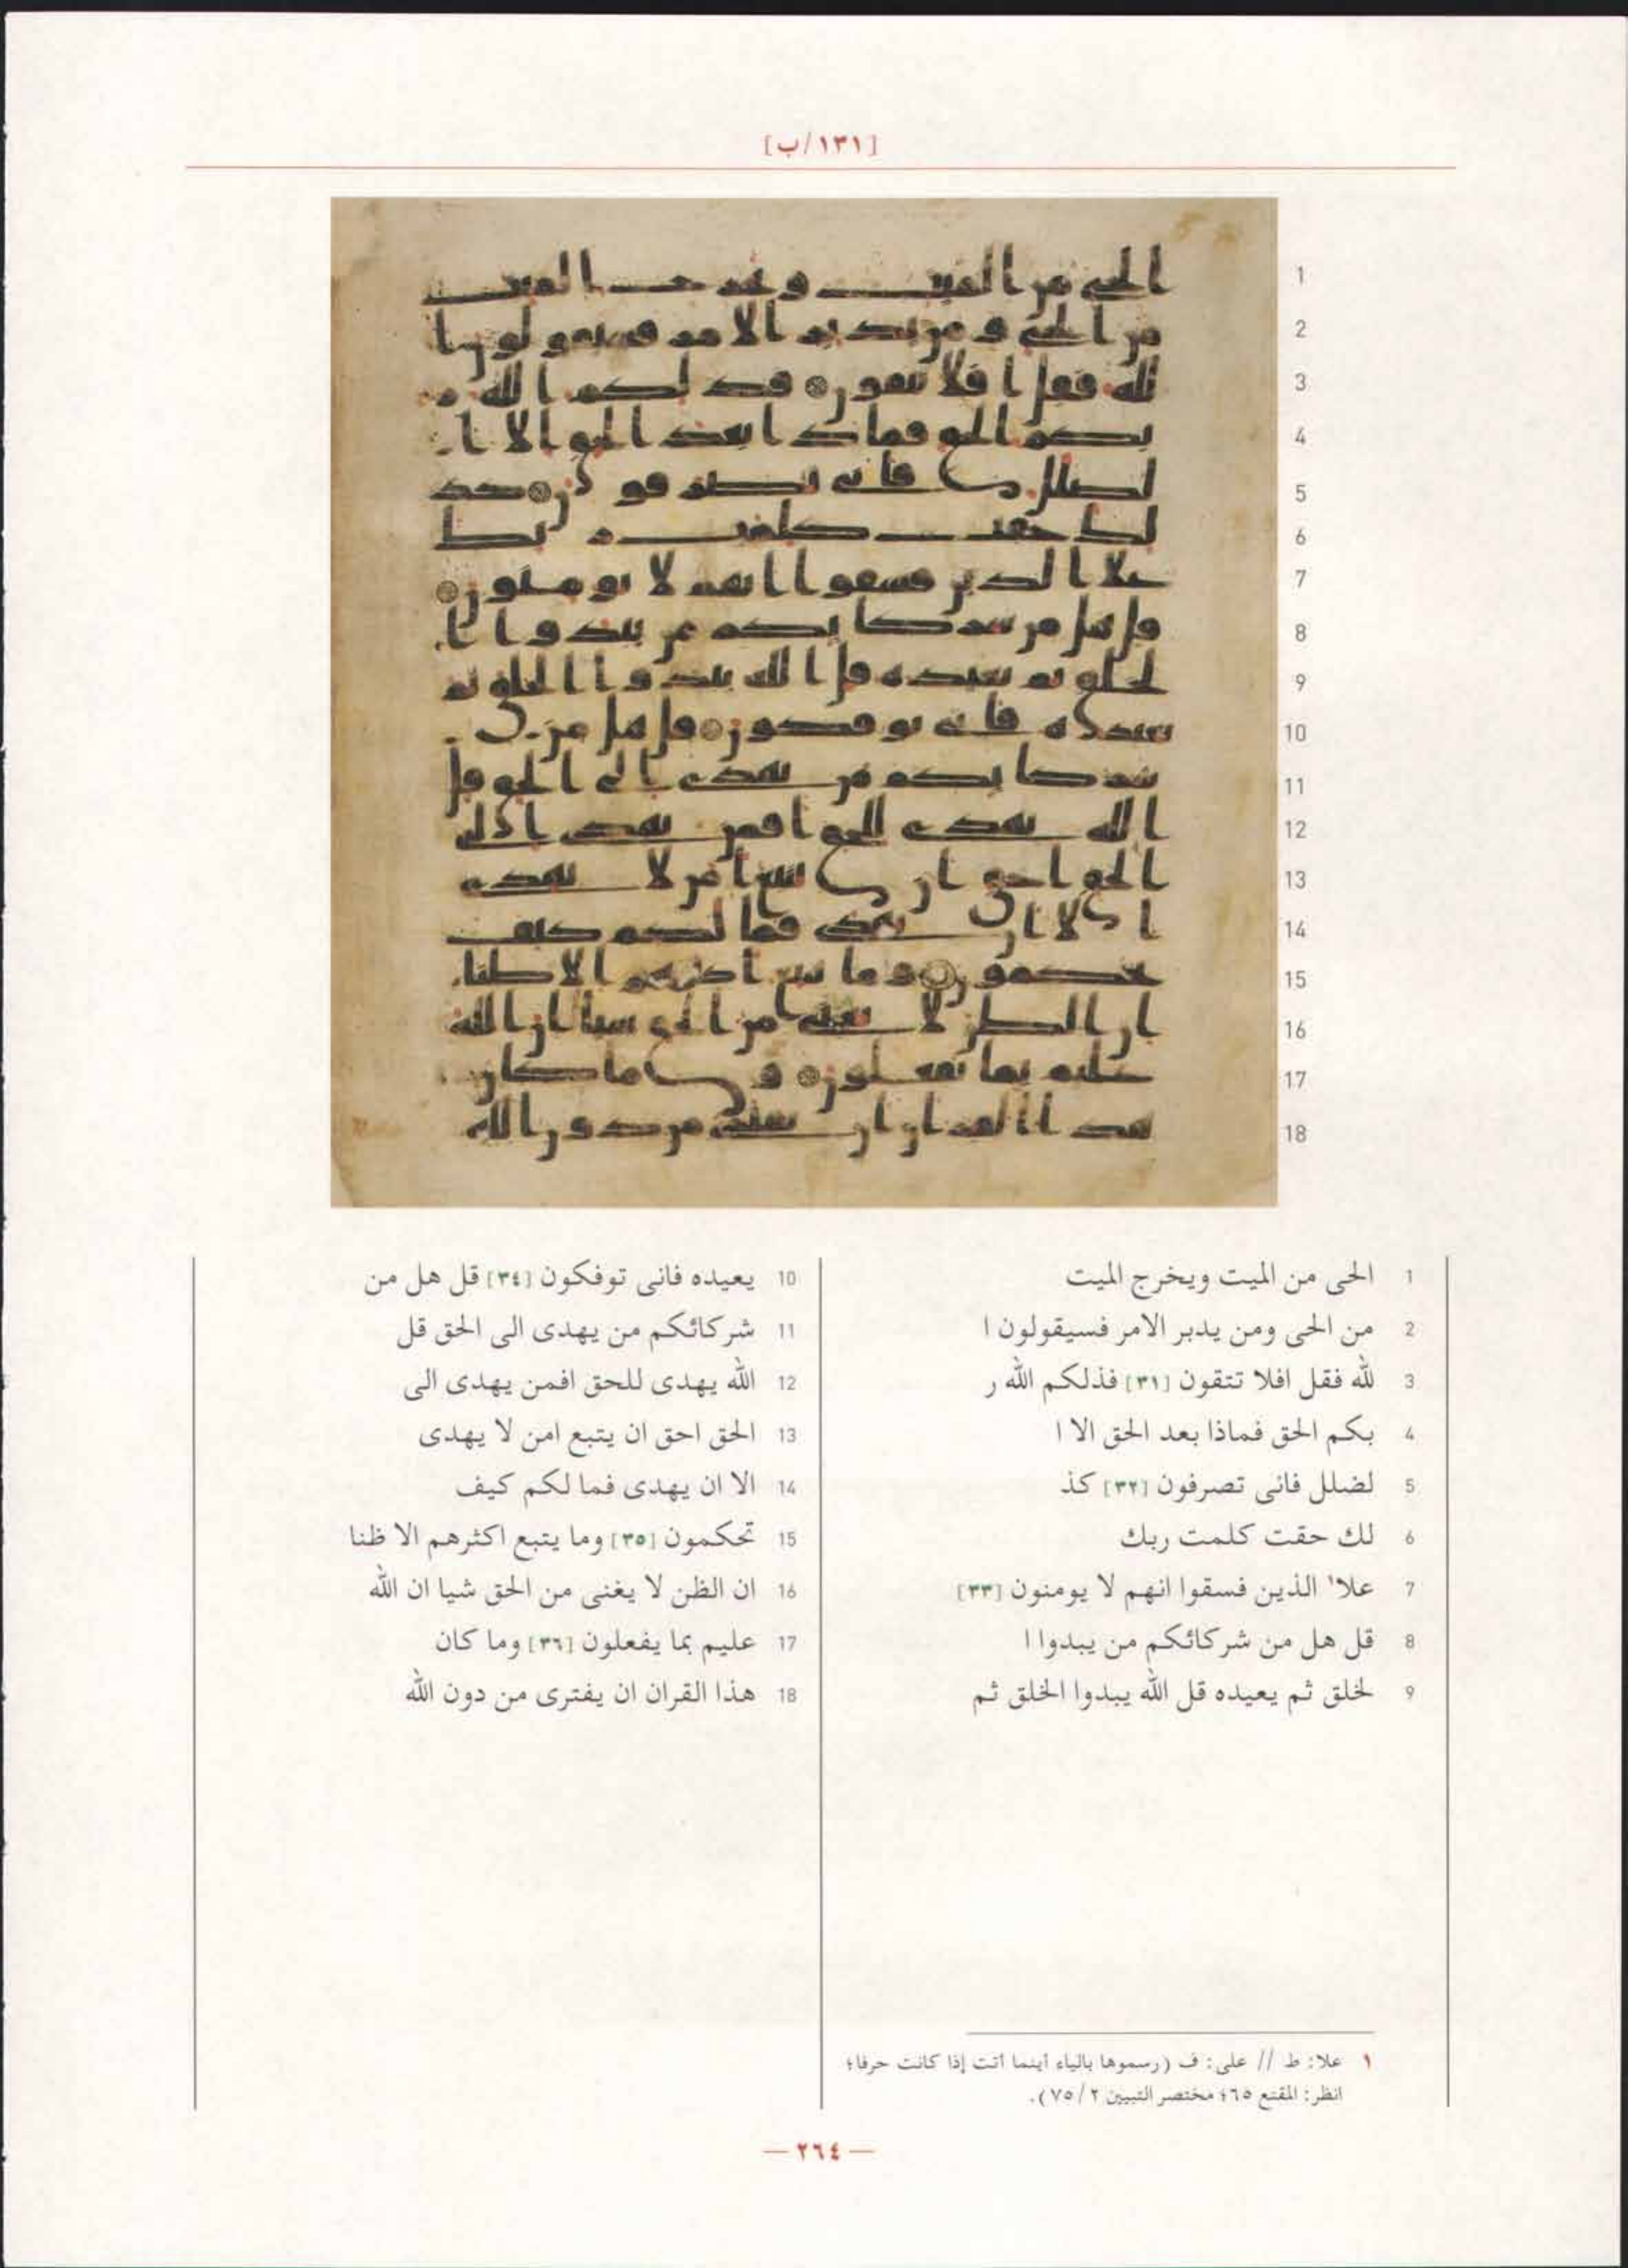 [١٣١/ب]
1 الحى من الميت ويخرج الميت
2 من الحى ومن يدبر الامر فسيقولون ا
3 لله فقل افلا تتقون [٣١] فذلكم الله ر
4 بكم الحق فماذا بعد الحق الا ا
5 لضلل فانى تصرفون [٣٢] كذ
6 لك حقت كلمت ربك
7 علا١ الذين فسقوا انهم لا يومنون [٣٣]
8 قل هل من شركائكم من يبدوا ا
9 لخلق ثم يعيده قل الله يبدوا الخلق ثم
10 يعيده فانى توفكون [٣٤] قل هل من
11 شركائكم من يهدى الى الحق قل
12 الله يهدى للحق افمن يهدى الى
13 الحق احق ان يتبع امن لا يهدى
14 الا ان يهدى فما لكم كيف
15 تحكمون [٣٥] وما يتبع اكثرهم الا ظنا
16 ان الظن لا يغنى من الحق شيا ان الله
17 عليم بما يفعلون [٣٦] وما كان
18 هذا القران ان يفترى من دون الله
١ علا: ط // على: ف (رسموها بالياء أينما أتت إذا كانت حرفا؛
انظر: المقنع ٦٥؛ مختصر التبيين ٢/ ٧٥).
— ٢٦٤ —